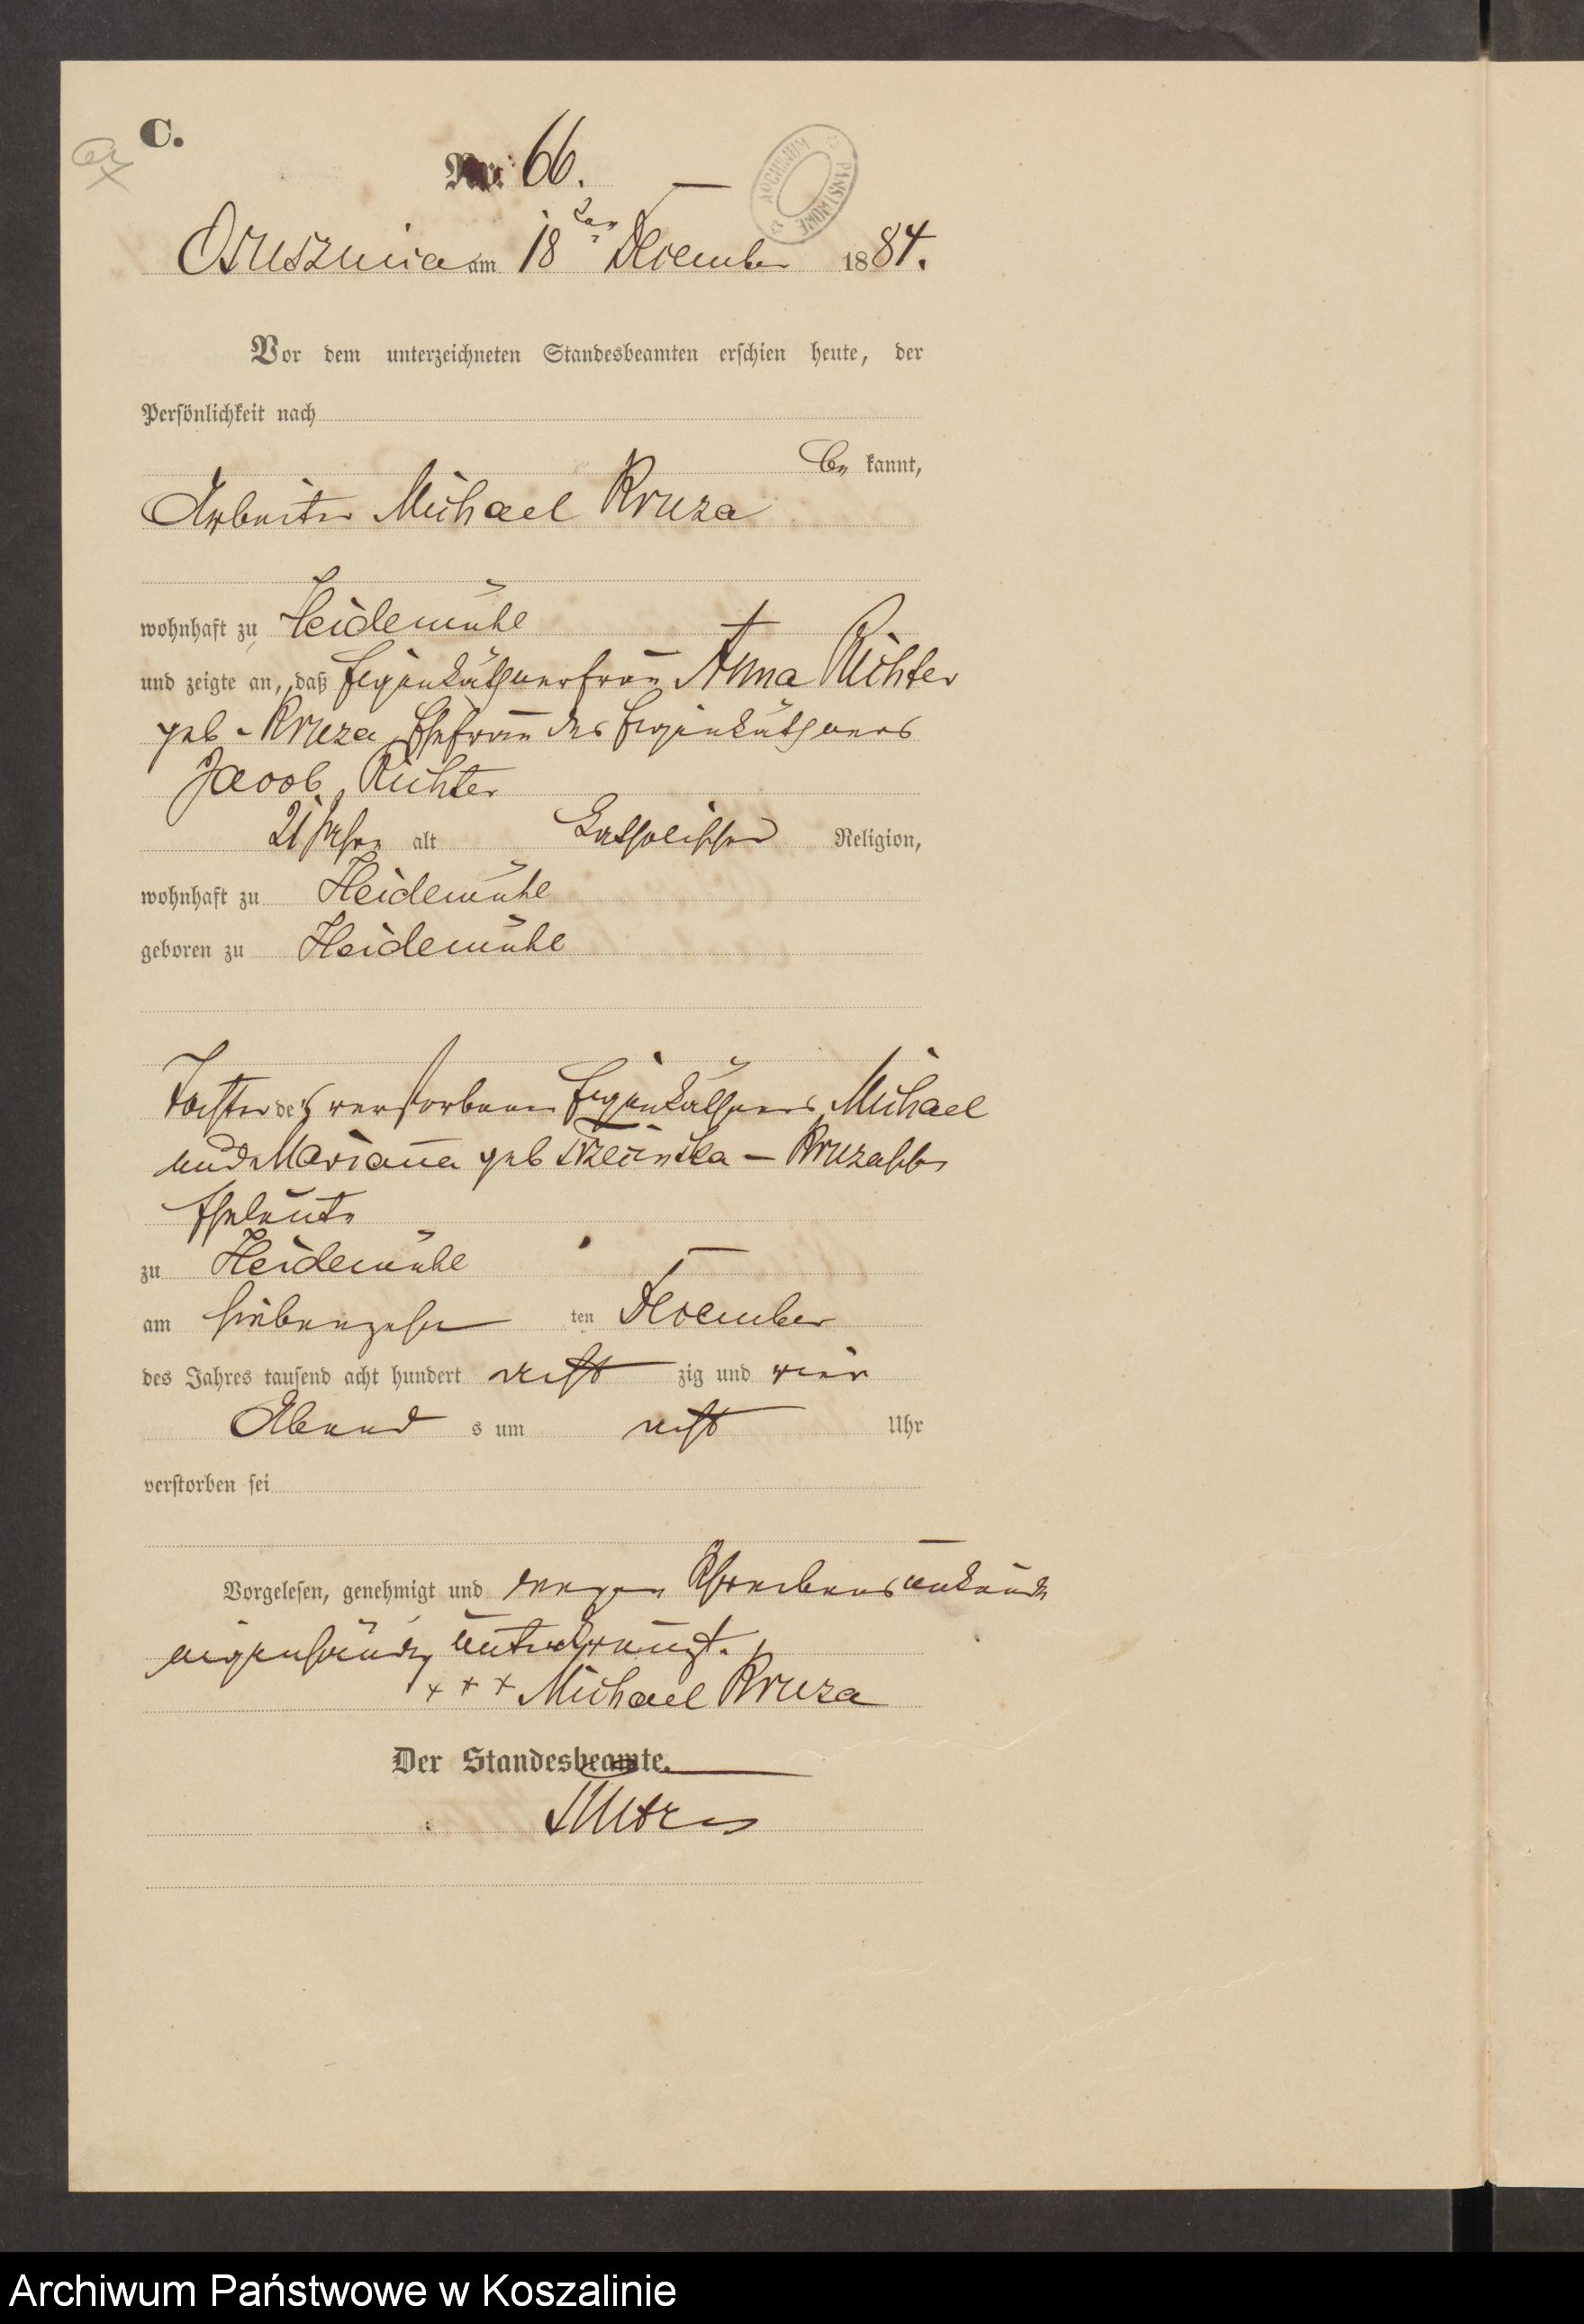 C.
Nr. 66.
ARCHIWUM PAŃSTWOWE
Ossusznica am 18 ten December 1884.
Vor dem unterzeichneten Standesbeamten erschien heute, der
Persönlichkeit nach
be kannt,
Arbeiter Michael Kruza
wohnhaft zu Heidemühl
und zeigte an, daß Eigenkäthnerfrau Anna Richter
geb. Kruza Ehefrau des Eigenkäthners
Jacob Richter
21 Jahre alt katholischer Religion,
wohnhaft zu Heidemühl
geboren zu Heidemühl
Tochter des verstorbenen Eigenkäthners Michael
und Mariana geb. – Kruza
Eheleute
zu Heidemühl
am siebenzehn ten December
des Jahres tausend acht hundert acht zig und vier
Abend s um acht Uhr
verstorben sei
Vorgelesen, genehmigt und wegen Schreibensunkunde
eigenhändig unterkreuzt.
+ + + Michael Kruza
Der Standesbeamte.
Archiwum Państwowe w Koszalinie